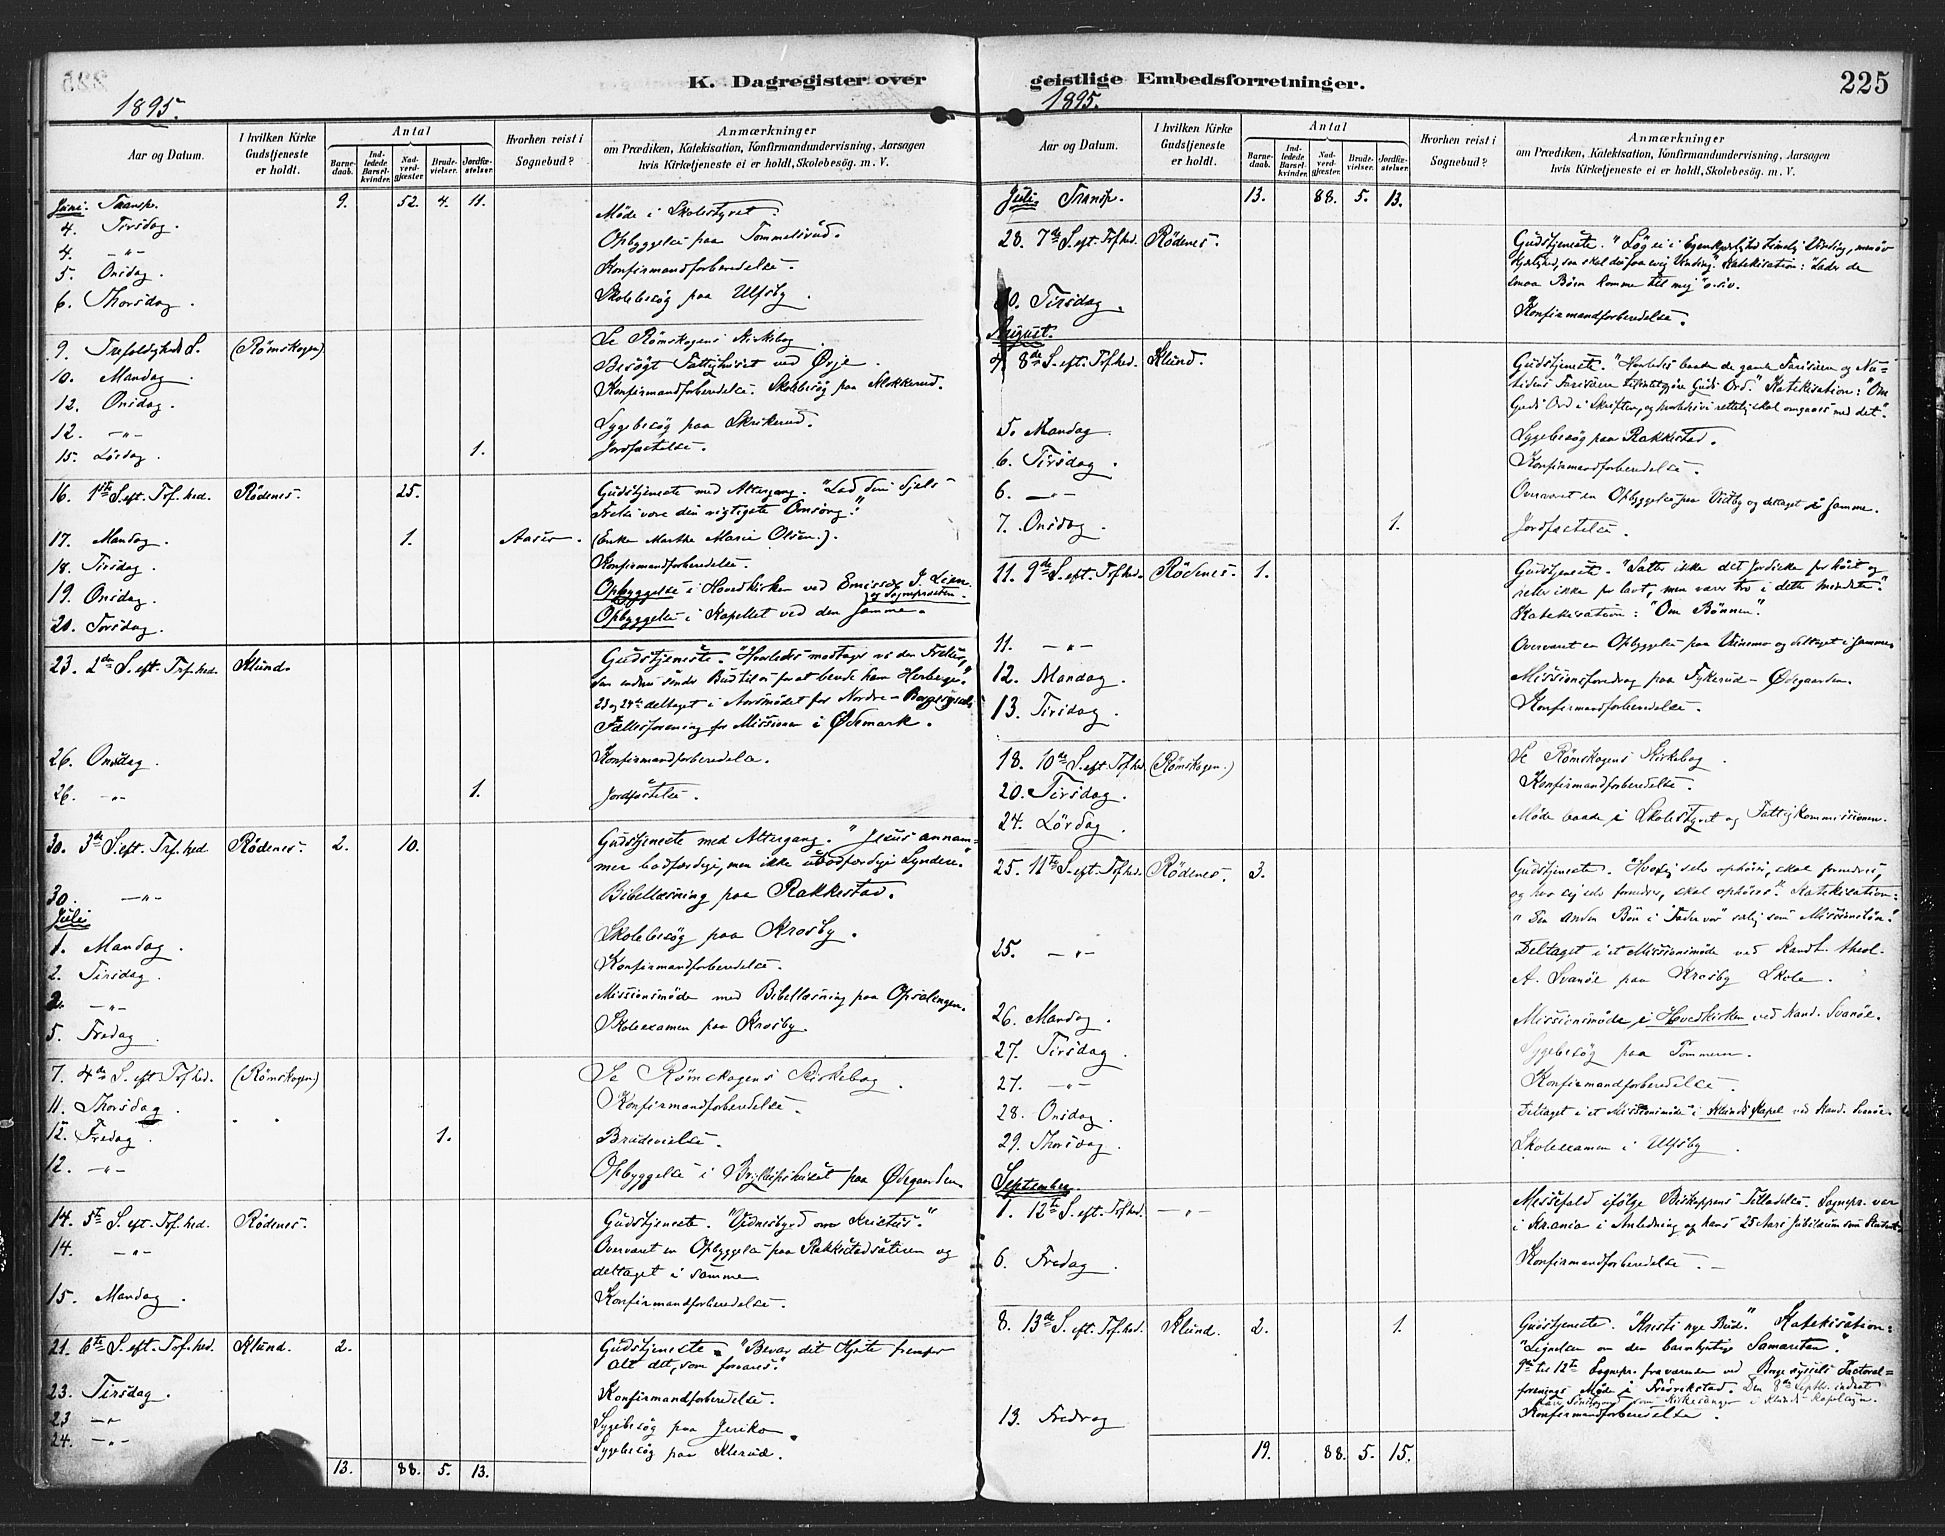 K. Dagregister over
1895.
Aar og Datum.
I hvilken Kirke Gudstjeneste er holdt.
Antal
Barne-daab.
Ind-ledede Barsel-kvinder.
Nad-verd-gjæster.
Brude-vielser.
Jordfæ-stelser.
Hvorhen reist i Sognebud?
Anmærkninger
om Prædiken, Katekisation, Konfirmandundervisning, Aarsagen
hvis Kirketjeneste ei er holdt, Skolebesøg. m. V.
Juni. Transp. 9. 52. 4. 11.
4. Tirsdag. Møde i Skolestyret.
4. -"- Opbyggelse paa Tommelsrud.
5. Onsdag. Konfirmandforberedelse.
6. Thorsdag. Skolebesøg paa Ulfsby.
9. Trefoldigheds S. (Rømskogen) Se Rømskogens Kirkebog
10. Mandag. Besøgt Fattighuset ved Ørje.
12. Onsdag. Konfirmandforberedelse. Skolebesøg paa Slokkerud.
12. -"- Sygebesøg paa Skrikerud.
15. Lördag. 1. Jordfæstelse.
16. 1ste S. eft. Tref. hed. Rödenes. 25. Gudstjeneste med Altergang. "Lad din Sjels
Frelse være din vigtigste Omsorg."
17. Mandag. 1. Aaser. (Enke Marthe Marie Olsen.).
18. Tirsdag. Konfirmandforberedelse.
19. Onsdag. Opbyggelse i Hovedkirken ved Emissær J. Lien
og Sognepresten.
20. Torsdag. Opbyggelse i Kapellet ved den samme.
23. 2den S. eft. Tref. hed. Klund. Gudstjeneste. "Hvorledes modtager vi den Frelser,
som endnu sender Bud til os for at berede ham Herberge."
23 og 24de deltaget i Aarsmødet for Nordre-Borgesyssels
Fællesforening for Missionen i Ødemark.
26. Onsdag. Konfirmandforberedelse.
26. -"- 1. Jordfæstelse.
30. 3de S. eft. Tref. hed. Rödenes. 2. 10. Gudstjeneste med Altergang. "Jesus annam-
mer bodfærdige, men ikke ubodfærdige Syndere."
30. -"- Bibellæsning paa Rakkestad.
Juli
1. Mandag. Skolebesøg paa Krosby.
2. Tirsdag. Konfirmandforberedelse.
2. -"- Missionsmøde med Bibellæsning paa Opsalengen.
5. Fredag. Skoleexamen paa Krosby.
7. 4de S. eft. Tref. hed. (Rømskogen) Se Rømskogens Kirkebog.
11. Thorsdag. Konfirmandforberedelse.
12. Fredag. 1. Brudevielse.
12. -"- Opbyggelse i Bryllupshuset paa Ødegaarden.
14. 5te S. eft. Tref. hed. Rödenes. Gudstjeneste. "Vidnesbyrd over Kristus."
14. -"- Overværet en Opbyggelse paa Rakkestadsæteren og
deltaget i samme
15. Mandag. Konfirmandforberedelse.
21. 6te S. eft. Tref. hed. Klund. 2. Gudstjeneste. "Bevar dit Hjerte fremfor
alt det, som forvares."
23. Tirsdag. Konfirmandforberedelse.
23 -"- Sygebesøg paa Jeriko.
24. -"- Sygebesøg paa Klerud.
13. 88. 5. 13.
geistlige Embedsforretninger.
225
1895.
Aar og Datum.
I hvilken Kirke Gudstjeneste er holdt.
Antal
Barne-daab.
Ind-ledede Barsel-kvinder.
Nad-verd-gjæster.
Brude-vielser.
Jordfæ-stelser.
Hvorhen reist i Sognebud?
Anmærkninger
om Prædiken, Katekisation, Konfirmandundervisning, Aarsagen
hvis Kirketjeneste ei er holdt, Skolebesøg. m. V.
Juli Transp. 13. 88. 5. 13.
28. 7de S. eft. Tref. hed. Rödenes. Gudstjeneste. "Søg ei i Egenkjærlighed timelig Vinding, men øv
Kjærlighed, saa skal du faa evig Vinding." Katekisation: "Lader de
smaa Børn komme til mig" o. s. v.
30. Tirsdag. Konfirmandforberedelse.
August.
4. 8de S. eft. Tref. hed. Klund. Gudstjeneste. "Hvorledes baade de gamle Farisæer og Nu-
tidens Farisæer tilintetgjøre Guds Ord." Katekisation: "Om
Guds Ord i Skriften, og hvorledes vi rettelig skal omgaaes med det".
5. Mandag. Sygebesøg paa Rakkestad.
6. Tirsdag. Konfirmandforberedelse.
6. -"- Overværet en Opbyggelse paa Vistby og deltaget i samme.
7. Onsdag. 1. Jordfæstelse.
11. 9de S. eft. Tref. hed. Rödenes. 1. Gudstjeneste. "Sætter ikke det Jordiske for höit og
heller ikke for lavt, men være tro i dette mindste."
Katekisation: "Om Bönnen".
11. -"- Overværet en Opbyggelse paa og deltaget i samme
12. Mandag. Missionsforedrag paa Tykerud-Ødegaarden.
13. Tirsdag. Konfirmandforberedelse.
18. 10de S. eft. Tref. hed (Rømskogen.) Se Rømskogens Kirkebog.
20. Tirsdag. Konfirmandforberedelse.
24. Lördag. Møde baade i Skolestyret og Fattigkommissionen.
25. 11te S. eft. Tref. hed. Rödenes. 3. Gudstjeneste. "Hvo sig selv ophöier, skal fornedres,
og hvo sig selv fornedrer, skal ophöies". Katekisation:
"Den anden Bön i 'Fader vor' særlig som Missionsbön."
25. -"- Deltaget i et Missionsmöde ved Kand. theol.
A. Svanöe paa Krosby Skole.
26. Mandag. Missionsmöde i Hovedkirken ved Kand. Svanöe.
27. Tirsdag. Sygebesøg paa Tommern.
27. -"- Konfirmandforberedelse.
28. Onsdag. Deltaget i et Missionsmöde i Klunds Kapel ved Kand. Svanöe
29. Thorsdag. Skoleexamen i Ulfsby
September
1. 12te S. eft. Tref. hed. -"- Messefald ifølge Biskoppens Tilladelse. Sognepr. var
i Krania i Anledning af hans 25 Aars Jubilæum som Student.
6. Fredag. Konfirmandforberedelse.
8. 13de S. eft. Tref. hed. Klund. 2. 1. Gudstjeneste. "Kristi nye Bud". Katekisation:
"Lignelsen om den barmhjertige Samaritan".
9de til 12te Sognepr. fraværende ved Borgesyssels Pastoral-
forenings Møde i Fredrikstad. Den 8de Septbr. indsat
som Kirkesanger i Klunds Kapelsogn.
13. Fredag Konfirmandforberedelse.
19. 88. 5. 15.